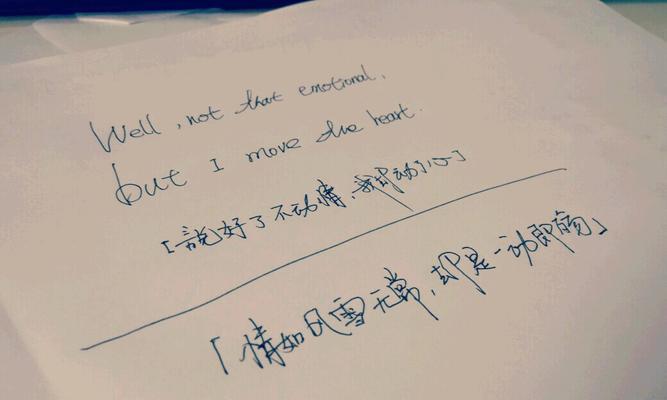 Well, not that emotional,
but I move the heart.
「說好了不动情，我却动了心」
「情如风雪无常，却是一动即殇」